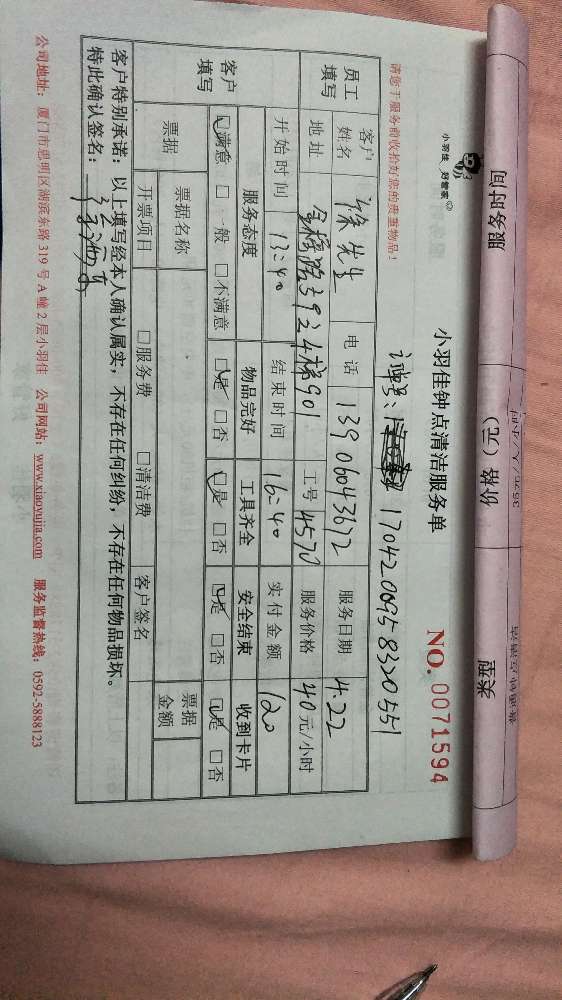 服务时间 价格（元） 类型
35元/人/小时
小羽佳 好管家
小羽佳钟点清洁服务单
NO. 0071594
请您于服务前收拾好您的贵重物品！
订单号： 1704200958320551
员工填写 客户姓名 徐先生 电话 13906043672 服务日期 4.22
地址 金榜路39 24梯901 工号 4570 服务价格 40元/小时
开始时间 13:40 结束时间 16:40 实付金额 120
客户填写 服务态度 物品完好 工具齐全 安全结束 收到卡片
☑满意 □一般 □不满意 ☑是 □否 ☑是 □否 ☑是 □否 ☑是 □否
票据 票据名称 票据金额
开票项目 □服务费 □清洁费 客户签名
客户特别承诺：以上填写经本人确认属实，不存在任何纠纷，不存在任何物品损坏。
特此确认签名：
公司地址：厦门市思明区湖滨东路319号A幢2层小羽佳 公司网站：www.xiaoyujia.com 服务监督热线：0592-5888123